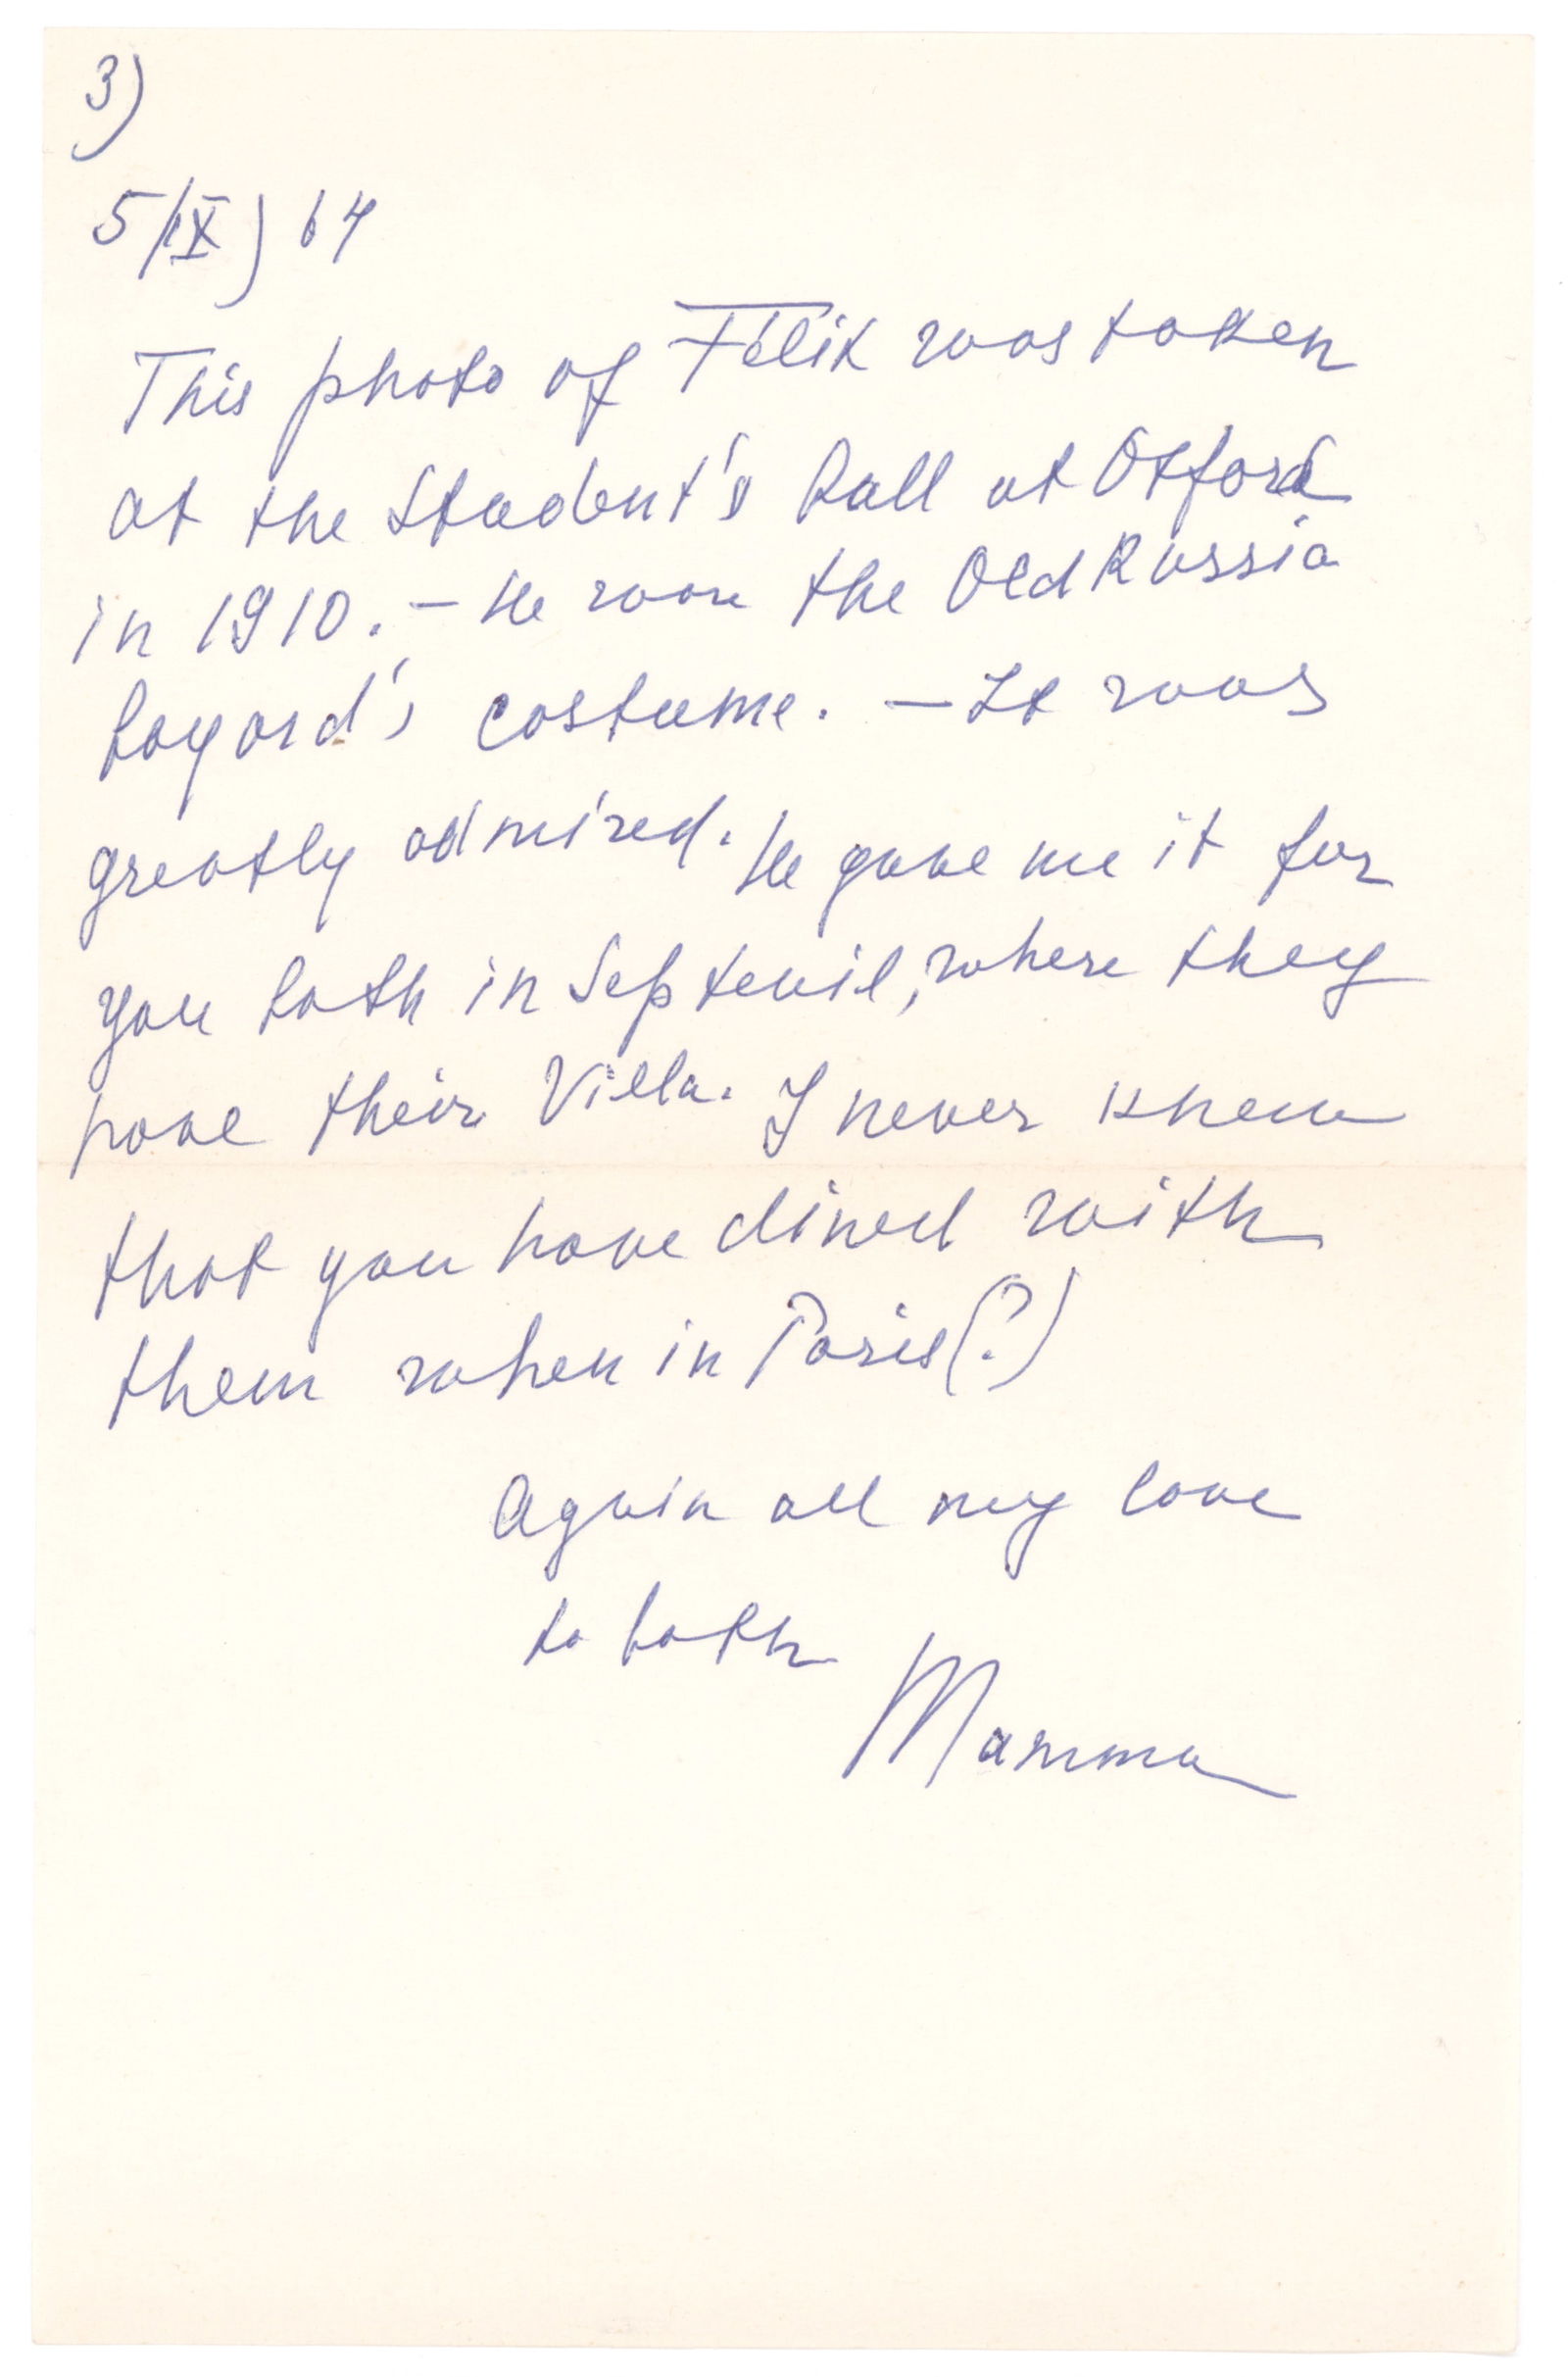 3)
5/IX) 64
This photo of Félix was taken
at the Student's ball at Oxford
in 1910. – He wore the Old Russia
boyard's costume. – It was
greatly admired. He gave me it for
you both in Septeuil, where they
have their Villa. I never knew
that you have dined with
them when in Paris(?)
Again all my love
to both
Mamma